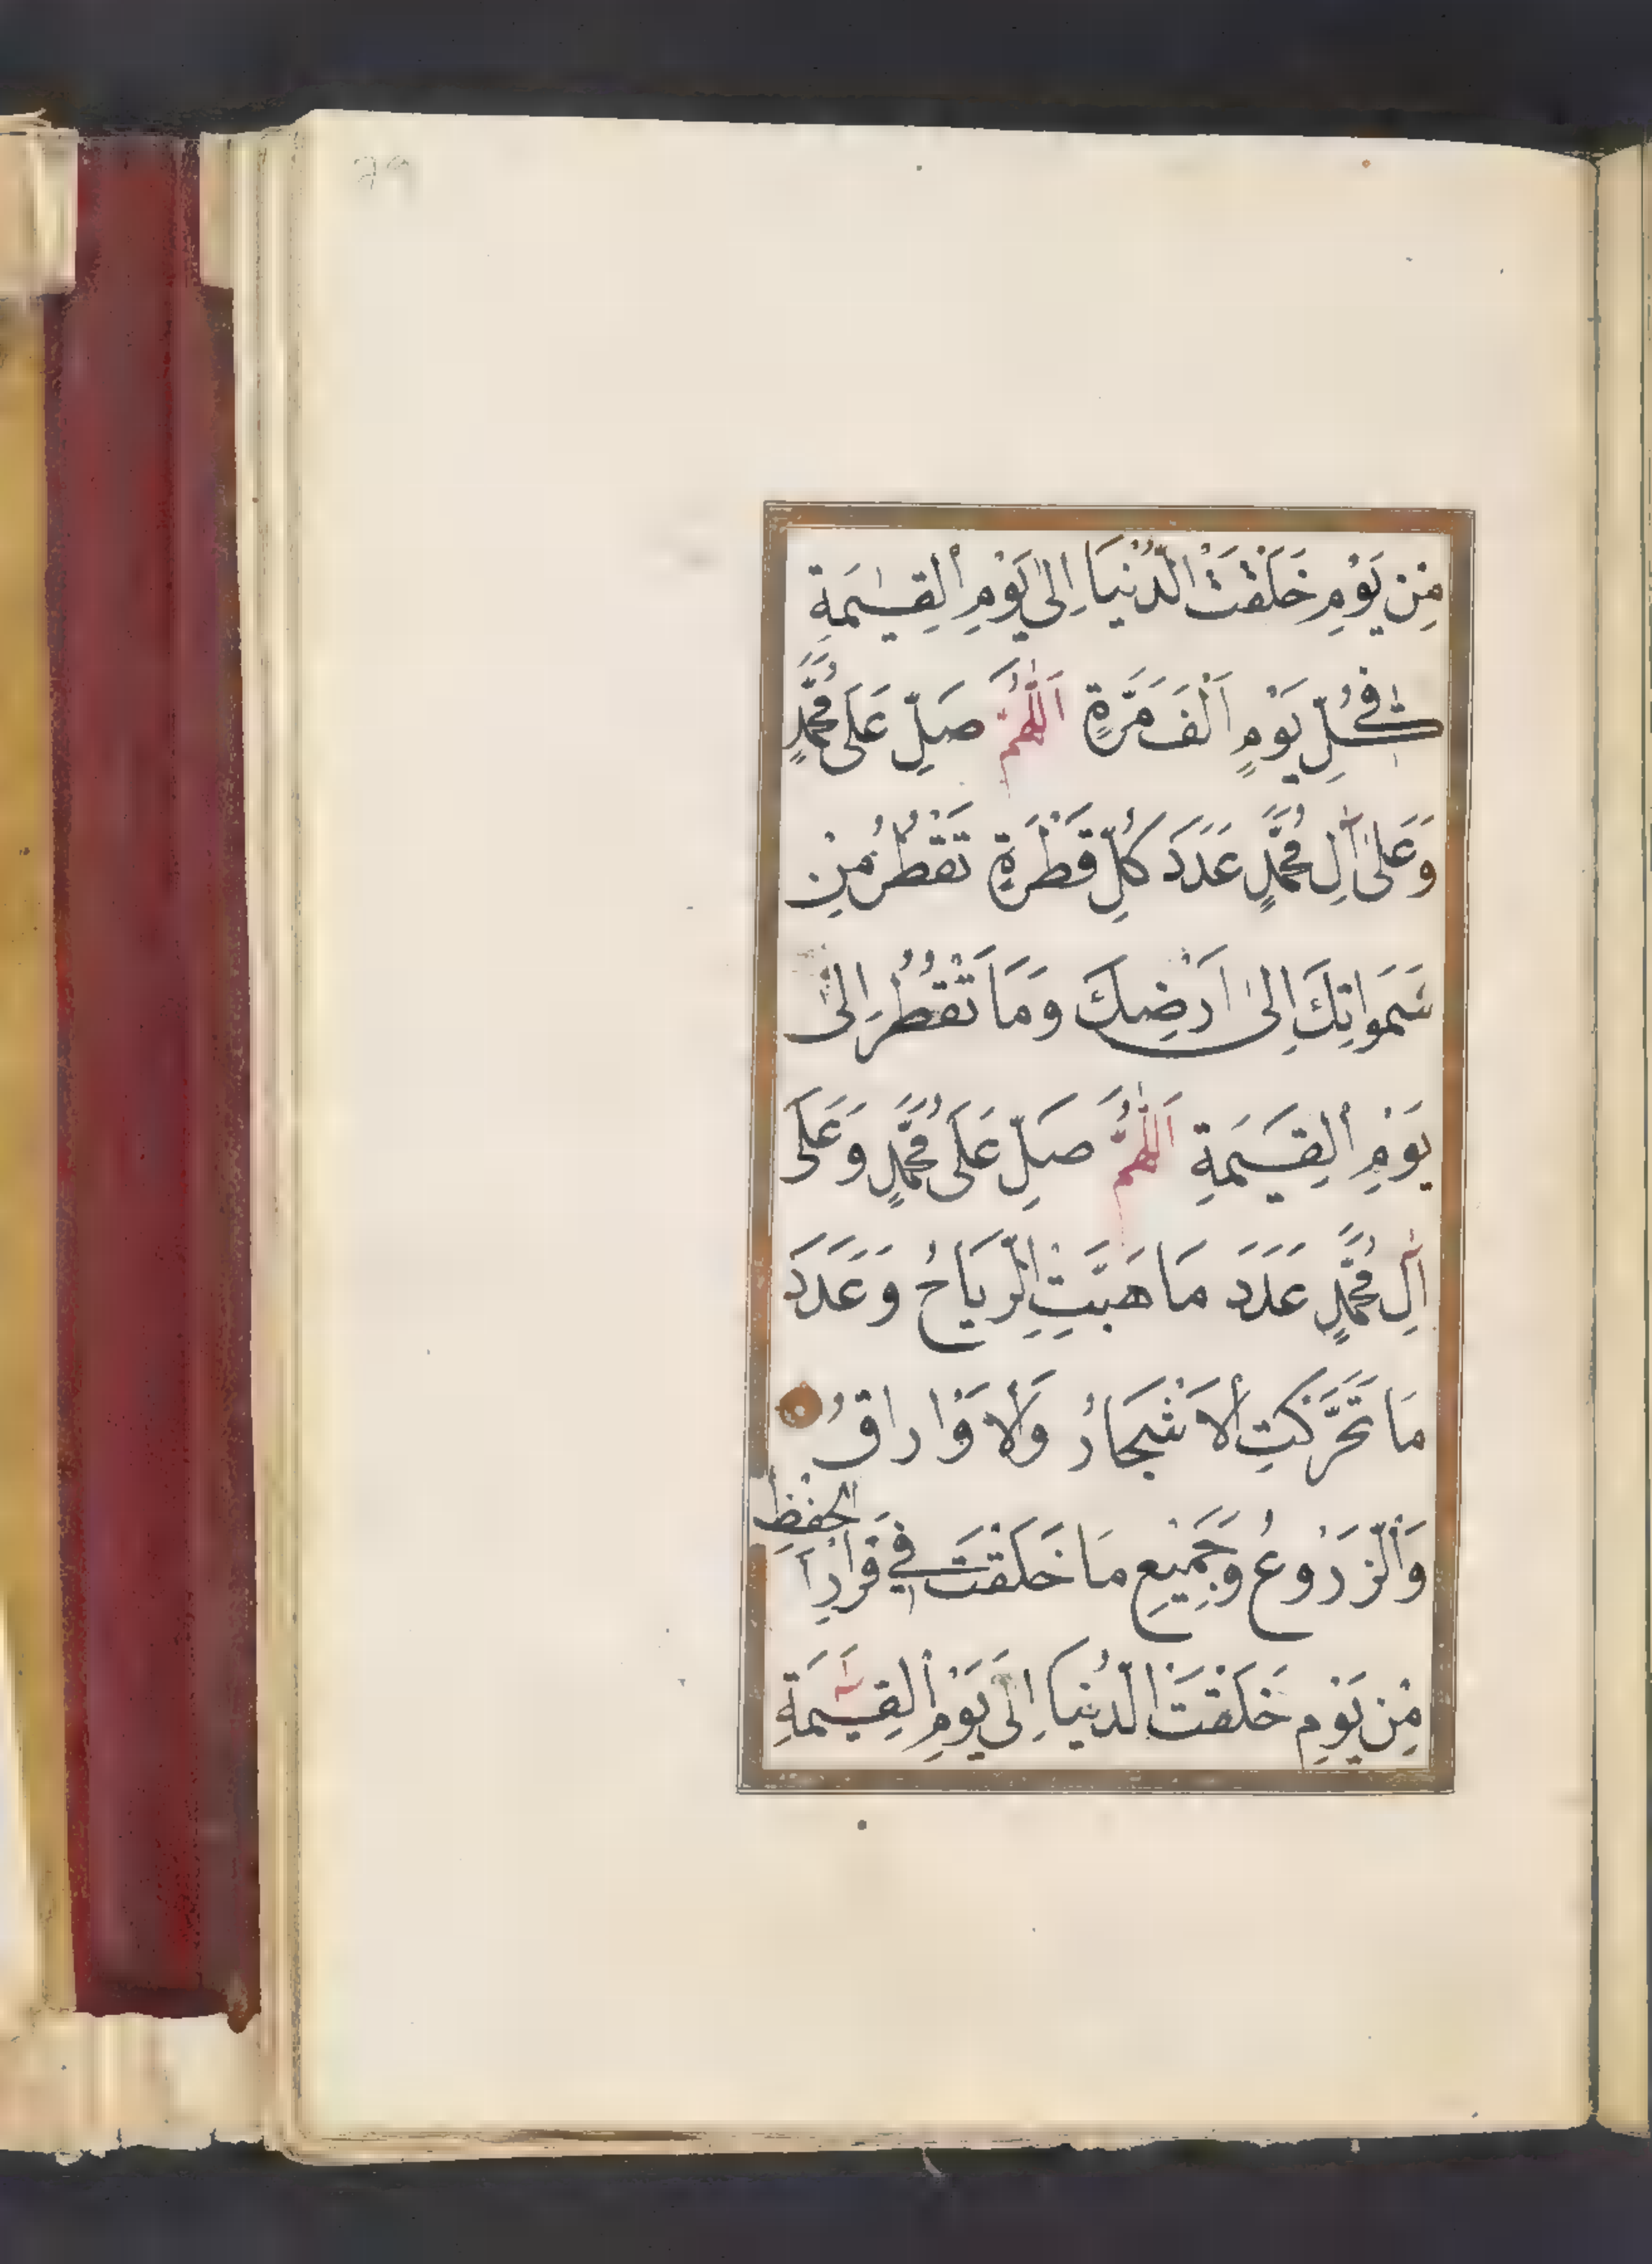 79
مِنْ يَوْمِ خَلَقْتَ الدُّنْيَا اِلىٰ يَوْمِ الْقِيٰمَةِ
فِى كُلِّ يَوْمٍ اَلْفَ مَرَّةٍ اَللّٰهُمَّ صَلِّ عَلَى مُحَمَّدٍ
وَعَلىٰ اٰلِ مُحَمَّدٍ عَدَدَ كُلِّ قَطْرَةٍ تَقْطُرُ مِنْ
سَمَواتِكَ اِلىٰ اَرْضِكَ وَمَا تَقْطُرُ اِلىٰ
يَوْمِ الْقِيٰمَةِ اَللّٰهُمَّ صَلِّ عَلَى مُحَمَّدٍ وَعَلَى
اٰلِ مُحَمَّدٍ عَدَدَ مَا هَبَّتِ الرِّيَاحُ وَعَدَدَ
مَا تَحَرَّكَتِ الْاَشْجَارُ وَالْاَوْارَاقُ
وَالزُّرُوعُ وَجَمِيْعِ مَا خَلَقْتَ فِى قَرَارِ الْحِفْظِ
مِنْ يَوْمِ خَلَقْتَ الدُّنْيَا اِلَى يَوْمِ الْقِيٰمَةِ